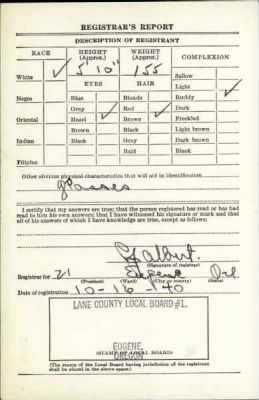 REGISTRAR'S REPORT
DESCRIPTION OF REGISTRANT
RACE HEIGHT (Approx.) WEIGHT (Approx.) COMPLEXION
5' 10" 155
White ✓ Sallow
EYES HAIR Light
Negro Blue Blonde Ruddy ✓
Gray Red Dark
Oriental Hazel ✓ Brown ✓ Freckled
Brown Black Light brown
Indian Black Gray Dark brown
Bald Black
Filipino
Other obvious physical characteristics that will aid in identification
glasses
I certify that my answers are true; that the person registered has read or has had
read to him his own answers; that I have witnessed his signature or mark and that
all of his answers of which I have knowledge are true, except as follows:
Albert
(Signature of registrar)
Registrar for 21 Eugene Ore
(Precinct) (Ward) (City or county) (State)
Date of registration 10-16-40
LANE COUNTY LOCAL BOARD #1,
EUGENE,
(STAMP OF LOCAL BOARD)
OREGON
(The stamp of the Local Board having jurisdiction of the registrant
shall be placed in the above space)